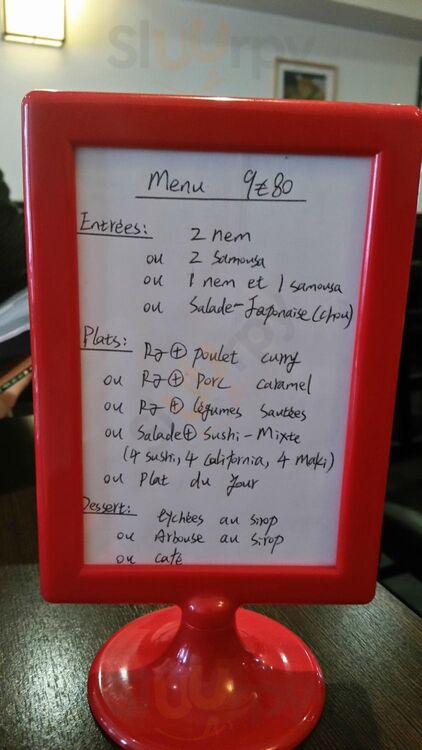 Sluurpy
Menu 9€80
Entrées: 2 nem
ou 2 samousa
ou 1 nem et 1 samousa
ou Salade-Japonaise (chou)
Plats: Rz ⊕ poulet curry
ou Rz ⊕ porc caramel
ou Rz ⊕ légumes sautées
ou Salade ⊕ Sushi-Mixte
(4 sushi, 4 california, 4 maki)
ou Plat du Jour
Dessert: Lychées au sirop
ou Arbouse au sirop
ou café